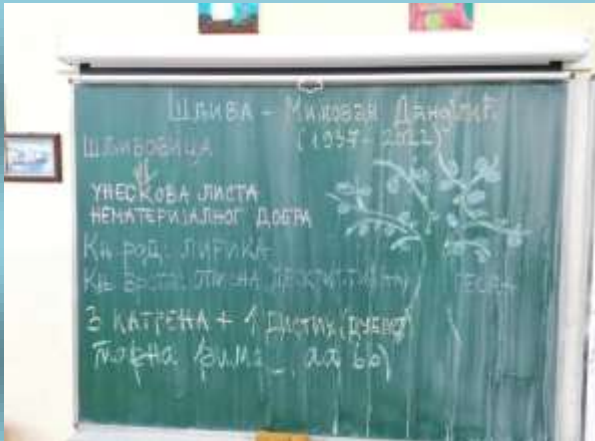 ШЉИВА - МИЛОВАН ДАНОЈЛИЋ
ШЉИВОВИЦА (1937-2022)
УНЕСКОВА ЛИСТА
НЕМАТЕРИЈАЛНОГ ДОБРА
КЊ. РОД: ЛИРИКА
КЊ. ВРСТА: ЛИСНА ДЕСКРИПТИВНА ПЕСМА
3 КАТРЕНА + 1 ДИСТИХ (ДУБЛЕТ)
ПАРНА РИМА aa bb)